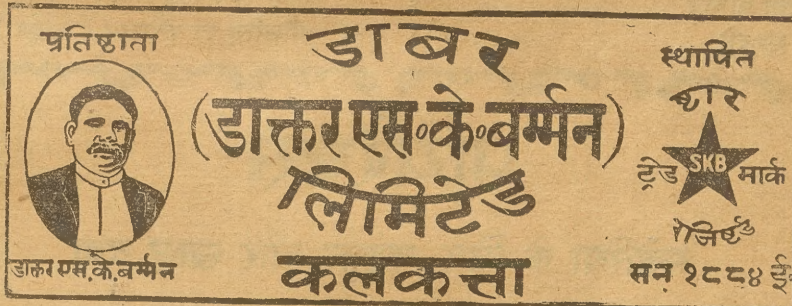 प्रतिष्ठाता
डाक्तर एस.के.बर्म्मन
डाबर
(डाक्तर एस॰के॰बर्म्मन)
लिमिटेड
कलकत्ता
स्थापित
ष्टार
ट्रेड SKB मार्क
रेजिष्टर्ड
सन् १८८४ ई